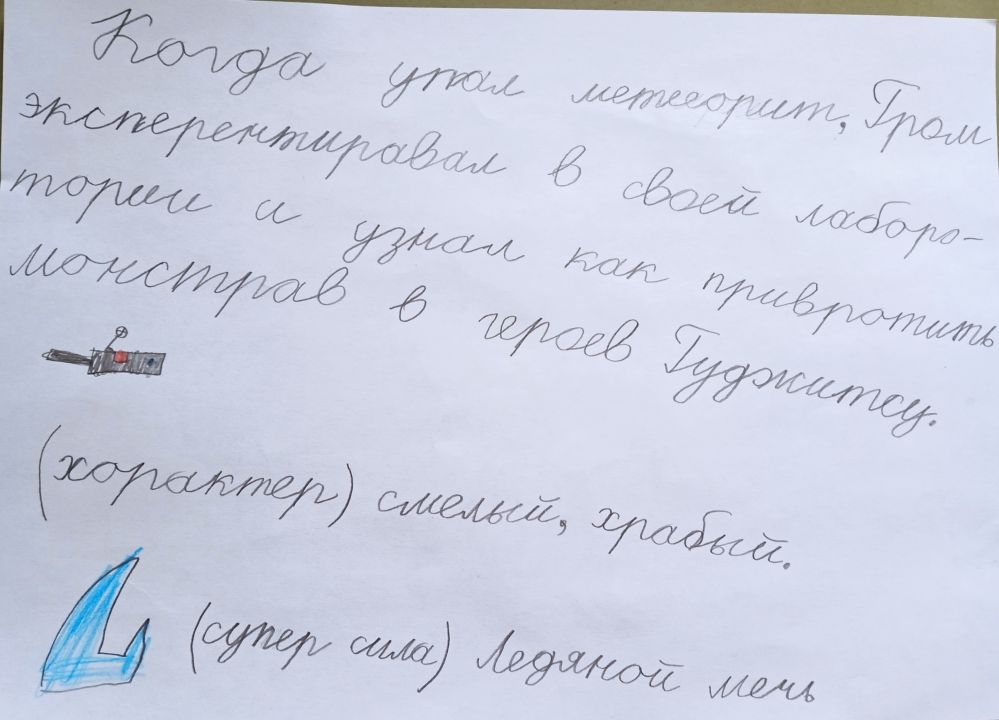 Когда упал метеорит, Гром
эксперентировал в своей лаборо-
тории и узнал как привротить
монстрав в героев Гуджитсу.
(хорактер) смелый, храбый.
(супер сила) Ледяной мечь